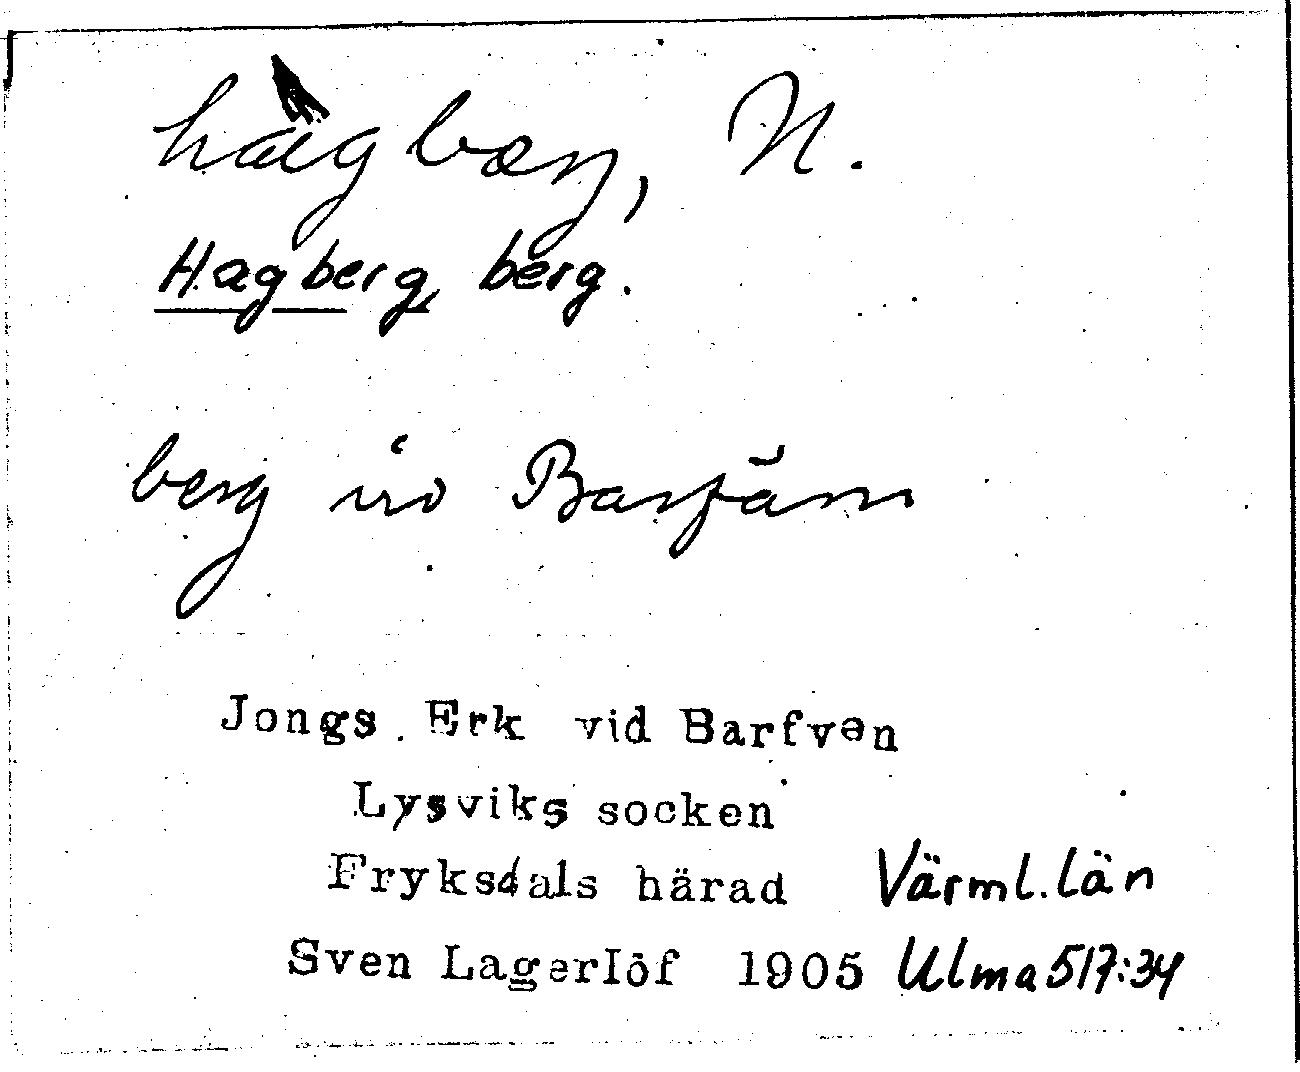 hàgbærj, N.
Hagberg, berg.
berg i
Jongs Erk vid Barfven
Lysviks socken
Fryksdals härad Värml. län
Sven Lagerlöf 1905 Ulma 517:34